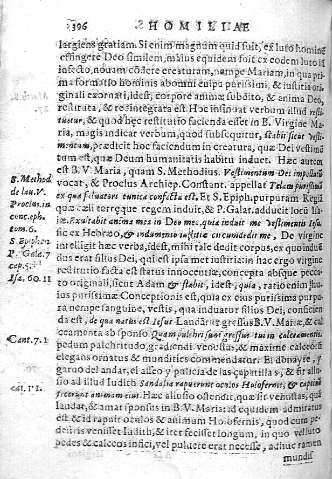 396 HOMILIAE
largiens gratiam. Si enim magnum quid fuit, ex luto hominē
effingere Deo similem, maius equidem fuit ex eodem luto iā
infecto, nouam cōdere creaturam, nempe Mariam, in qua pri-
ma formatio hominis abomni culpa purissimi, & iustitia ori-
ginali exornati, idest, corpore animæ subdito, & anima Deo,
restituta, & redintegrata est Hoc insinuat verbum illud resti-
tuetur, & quod hęc restitutio facienda esset in B. Virgine Ma-
ria, magis indicat verbum, quod subsequitur, stabit sicut vesti-
mentum, prædicit hoc faciendum in creatura, quæ Dei vestimē
tum est, quæ Deum humanitatis habitu induet Hæc autem
est B. V. Maria, quam S. Methodius. Vestimentum Dei impollu
vocat, & Proclus Archiep. Constant. appellat Telam purissimā
ex qua saluatoris tunica confecta est, Et S. Epiph. purpuram Regiā
quæ cæli terręque regem induit, & P. Galat. adducit locū I-
saiæ. Exultabit anima mea in Deo meo, quia induit me
sic ex Hebræo, & indumento iustitiæ circumdedit me. De virgine
intelligit hæc verba, idest, mihi tale dedit corpus, ex quo indu
dus erat filius Dei, qui est ipsa met iustitia in hac ergo virgine
restitutio facta est status innocentiæ, concepta absque pecca-
to originali, sicut Adam & stabit, idest, quia, ratione
ius purissimæ Conceptionis est, quia ex eius purissima purpu
ra nempe sanguine, vestis, qua induatur filius Dei, conscien
da est, de qua natus est Iesus Laudātur gressus B. V. Mariæ & cal
ceamenta ab sponso Quam pulchri sunt gressus tui in calceamentis
pedum pulchritudo, gradiendi venustas, & maximè calceorū
elegans ornatus & mundities commendatur. El donayre, y
garuo del andar, el asseo y policia de las çapatillas, & fit allu-
sio ad illud Iudith Sandalia rapuerunt oculos Holofernis, & captiuā
fecerunt animam eius. Hæc allusio ostendit, quæ sit venustas, quā
laudat, & amat sponsus in B. V. Maria ad equidem admiratus
est & id rapuit oculos & animum Holofernis, quod cum pe-
destris venisset Iudith, & iter fecisset longum, in quo velluto
pedes & calceos infici, vel puluere erat necesse, adhuc tamen
mundis
S. Method.
de lau. V.
Proclus. in
conc. eph.
tom. 6.
S. Epiph.
P. Gala. 7
cap. 5.
Isa. 60. 11
Cant. 7. 1